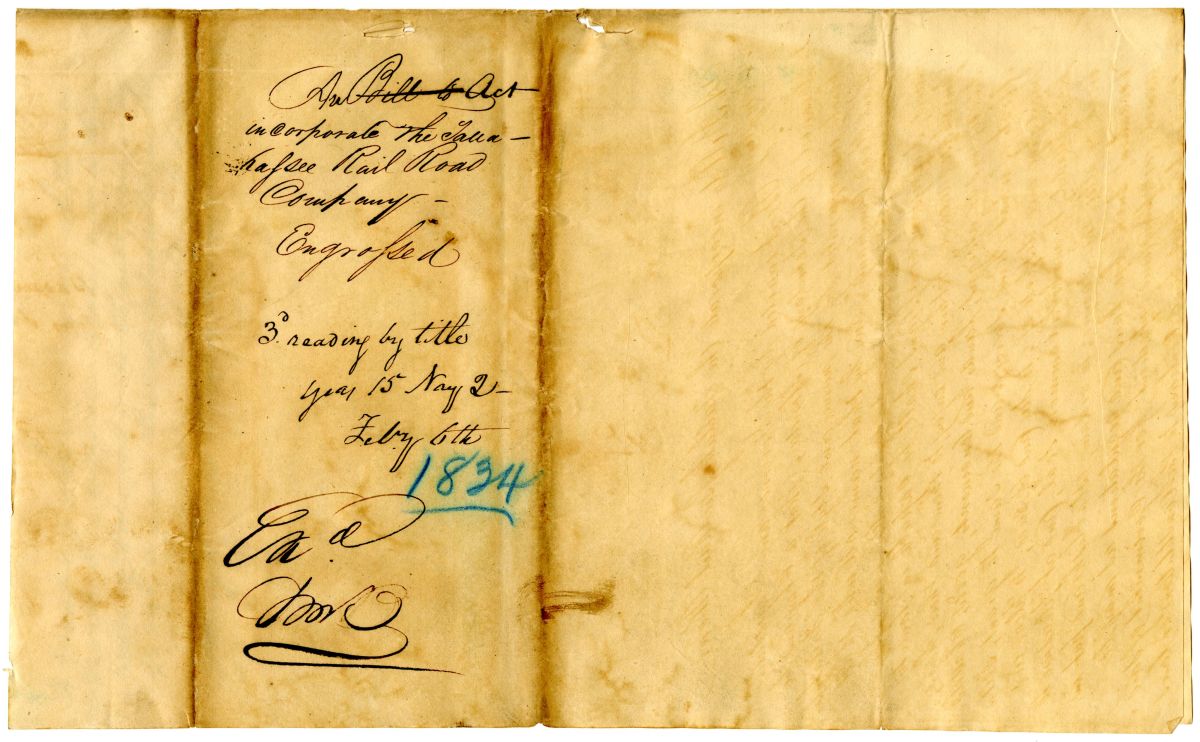 An ~~Bill to~~ Act
incorporate the Talla-
hassee Rail Road
Company -
Engrossed
3d. reading by title
yeas 15 Nays 2 -
Feby 6th
1834
Exd.